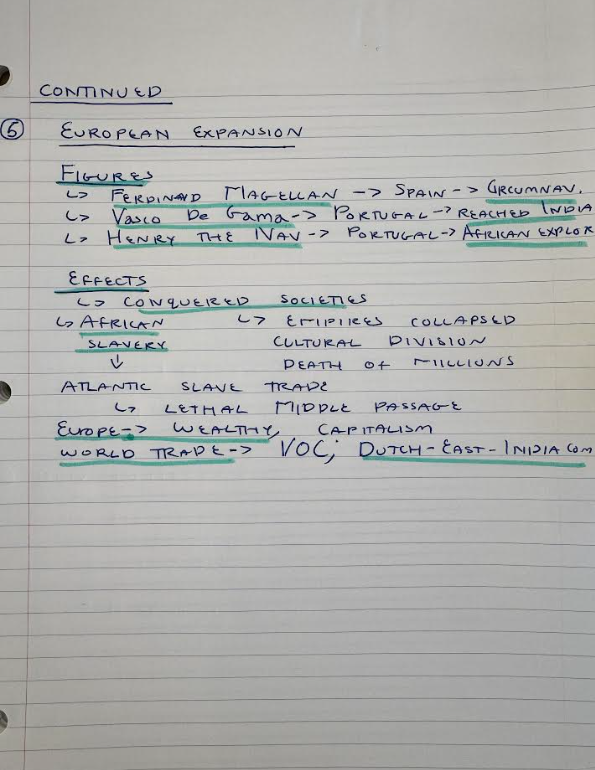 CONTINUED
⑤ EUROPEAN EXPANSION
FIGURES
↳ FERDINAND MAGELLAN -> SPAIN -> CIRCUMNAV.
↳ VASCO DE GAMA -> PORTUGAL -> REACHED INDIA
↳ HENRY THE NAV -> PORTUGAL -> AFRICAN EXPLOR
EFFECTS
↳ CONQUERED SOCIETIES
↳ AFRICAN ↳ EMPIRES COLLAPSED
SLAVERY CULTURAL DIVISION
↓ DEATH OF MILLIONS
ATLANTIC SLAVE TRADE
↳ LETHAL MIDDLE PASSAGE
EUROPE -> WEALTHY, CAPITALISM
WORLD TRADE -> VOC; DUTCH-EAST-INDIA COM